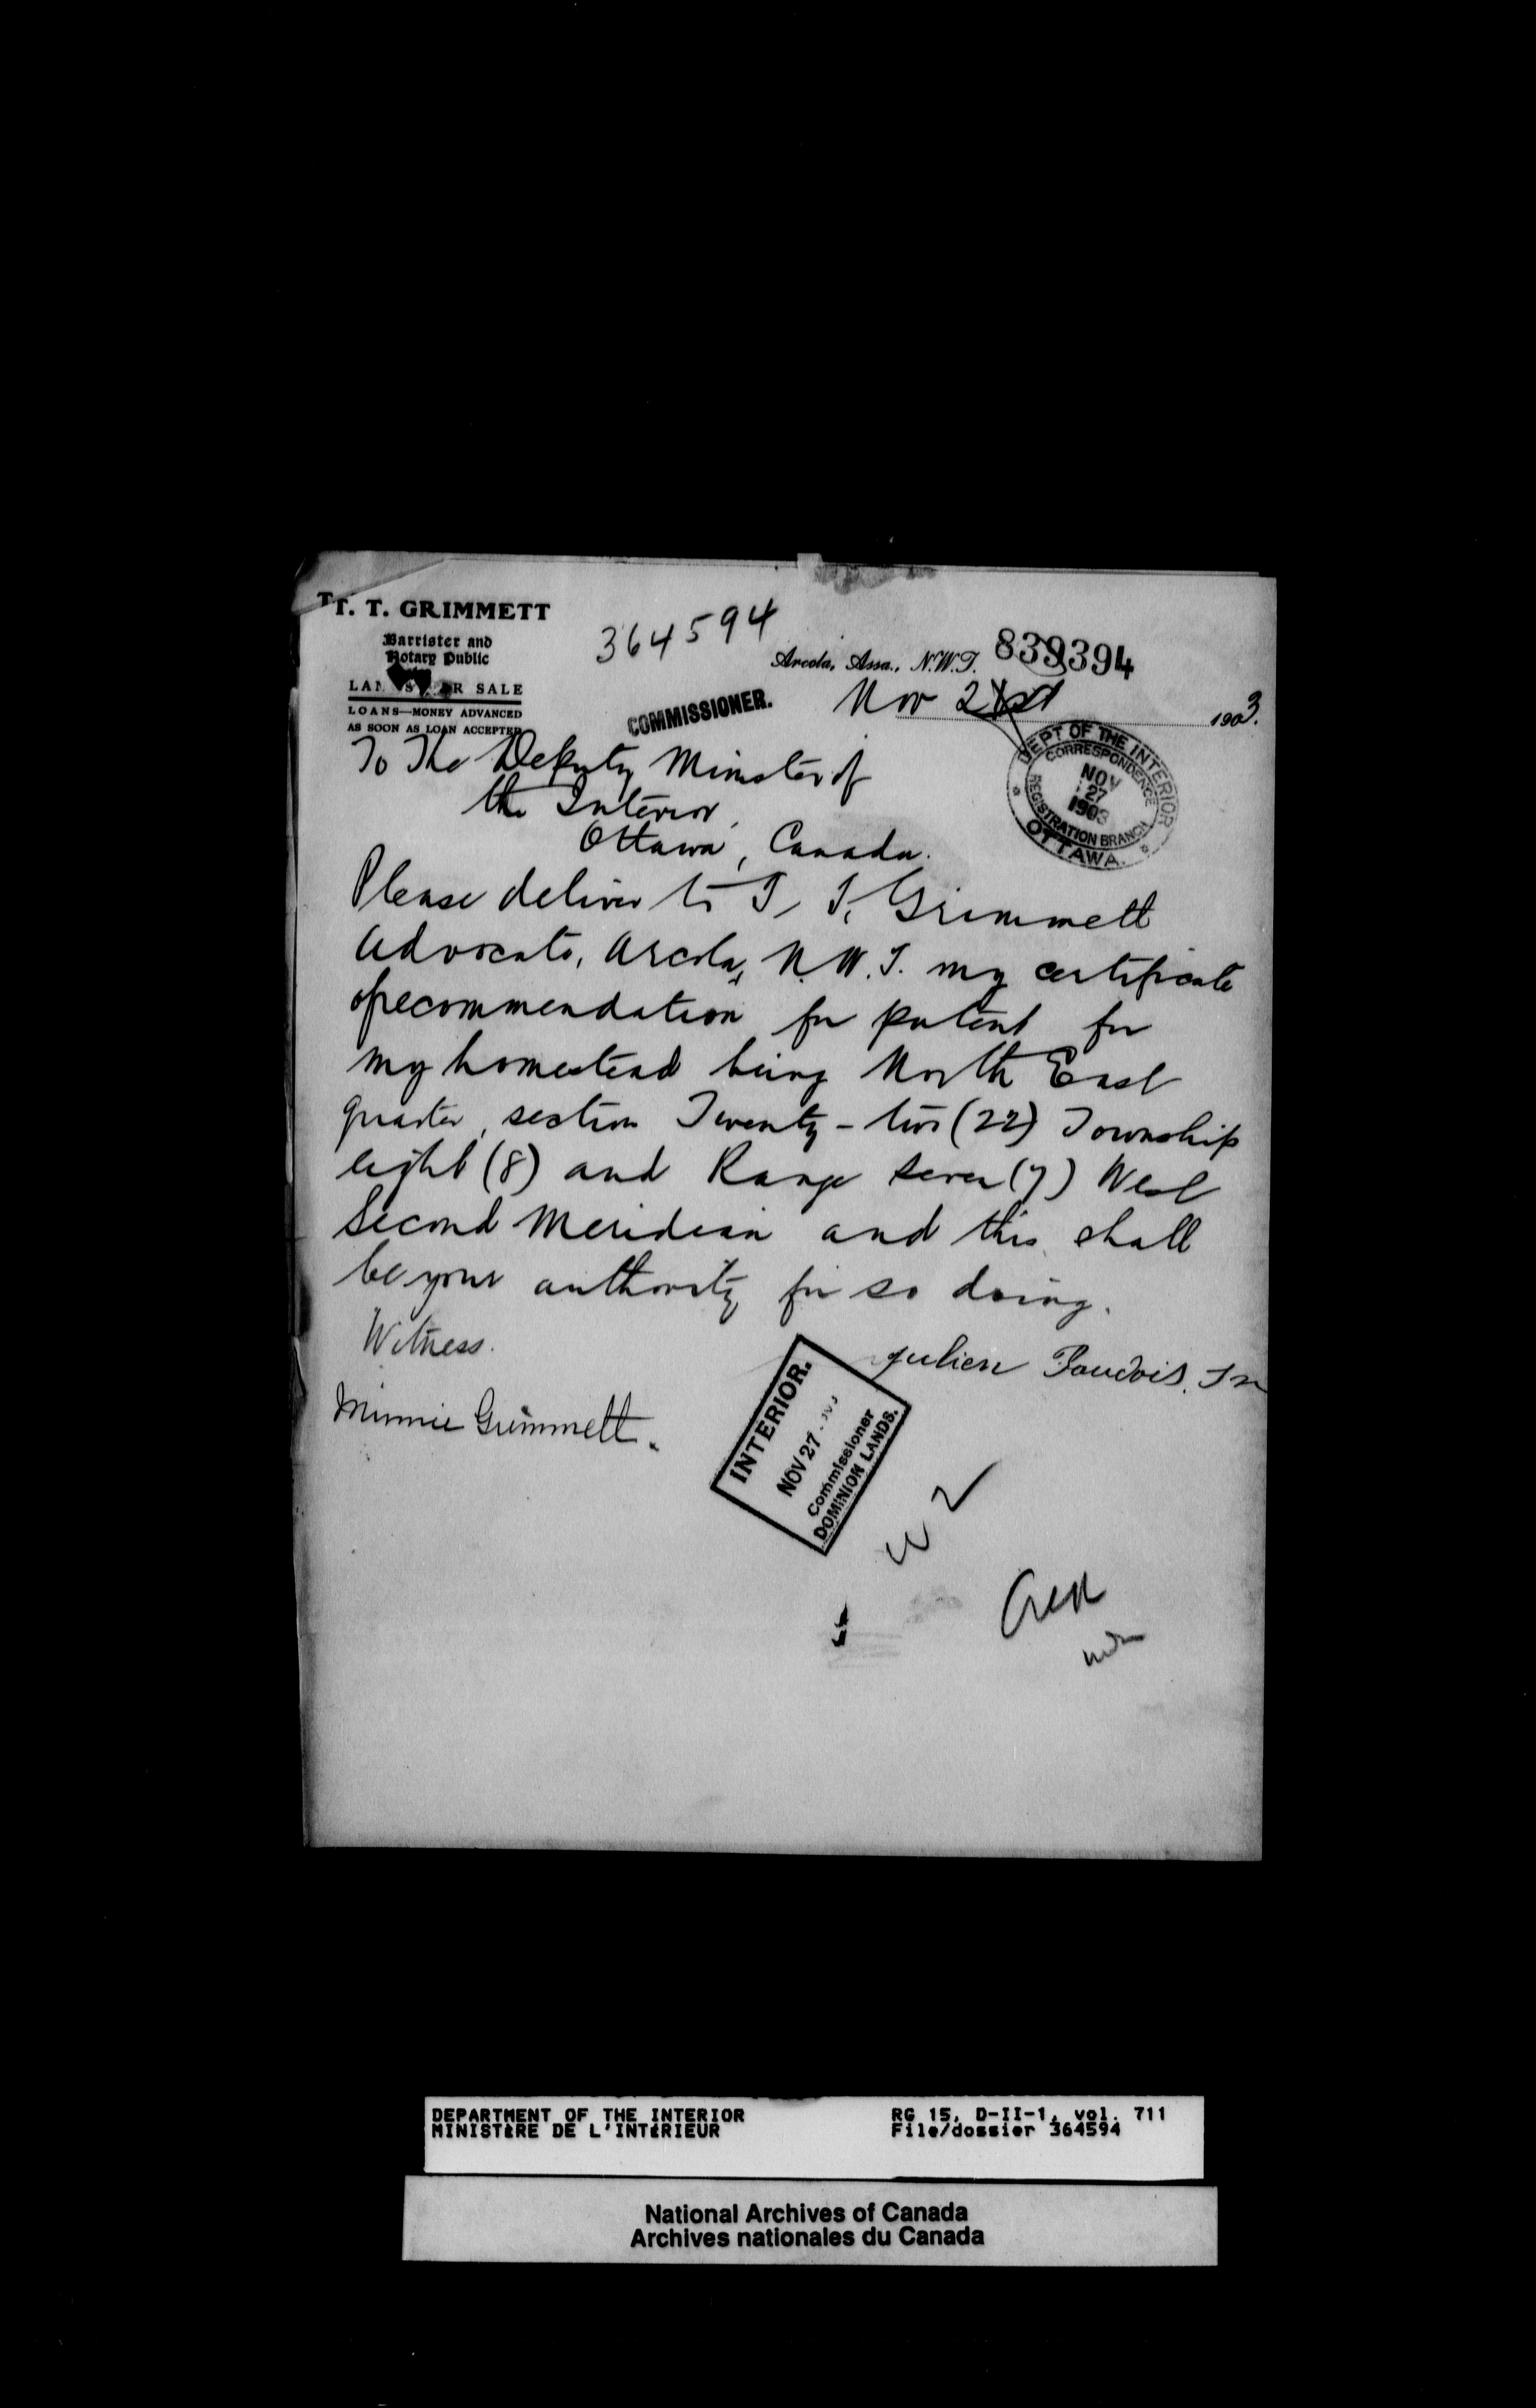 T. T. GRIMMETT
Barrister and
Notary Public
LOANS—MONEY ADVANCED
AS SOON AS LOAN ACCEPTED
364594
Arcola, Assa., N.W.T.
839394
Nov 21st 1903.
COMMISSIONER.
DEPT OF THE INTERIOR
CORRESPONDENCE
NOV
27
1903
REGISTRATION BRANCH
OTTAWA.
To The Deputy Minister of
the Interior,
Ottawa, Canada.
Please deliver to T. T. Grimmett
Advocate, Arcola, N.W.T. my certificate
of recommendation for patent for
my homestead being North East
quarter, section Twenty-two (22) Township
eight (8) and Range seven (7) West
Second Meridian and this shall
be your authority for so doing.
Witness.
Julien
Minnie Grimmett.
INTERIOR.
NOV 27
Commissioner
DOMINION LANDS.
DEPARTMENT OF THE INTERIOR
MINISTÈRE DE L'INTÉRIEUR
RG 15, D-II-1, vol. 711
File/dossier 364594
National Archives of Canada
Archives nationales du Canada